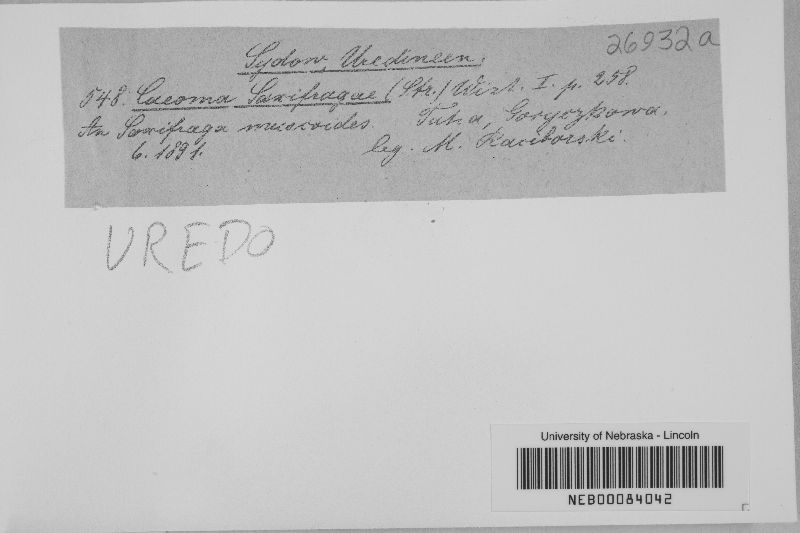 26932a
Sydow, Uredineen.
548. Caeoma Saxifragae (Str.) Wint. I. p. 258.
An Saxifraga muscoides. Tatra, Goryczkowa.
6. 1891. leg. M. Raciborski.
UREDO
University of Nebraska - Lincoln
NEB00084042